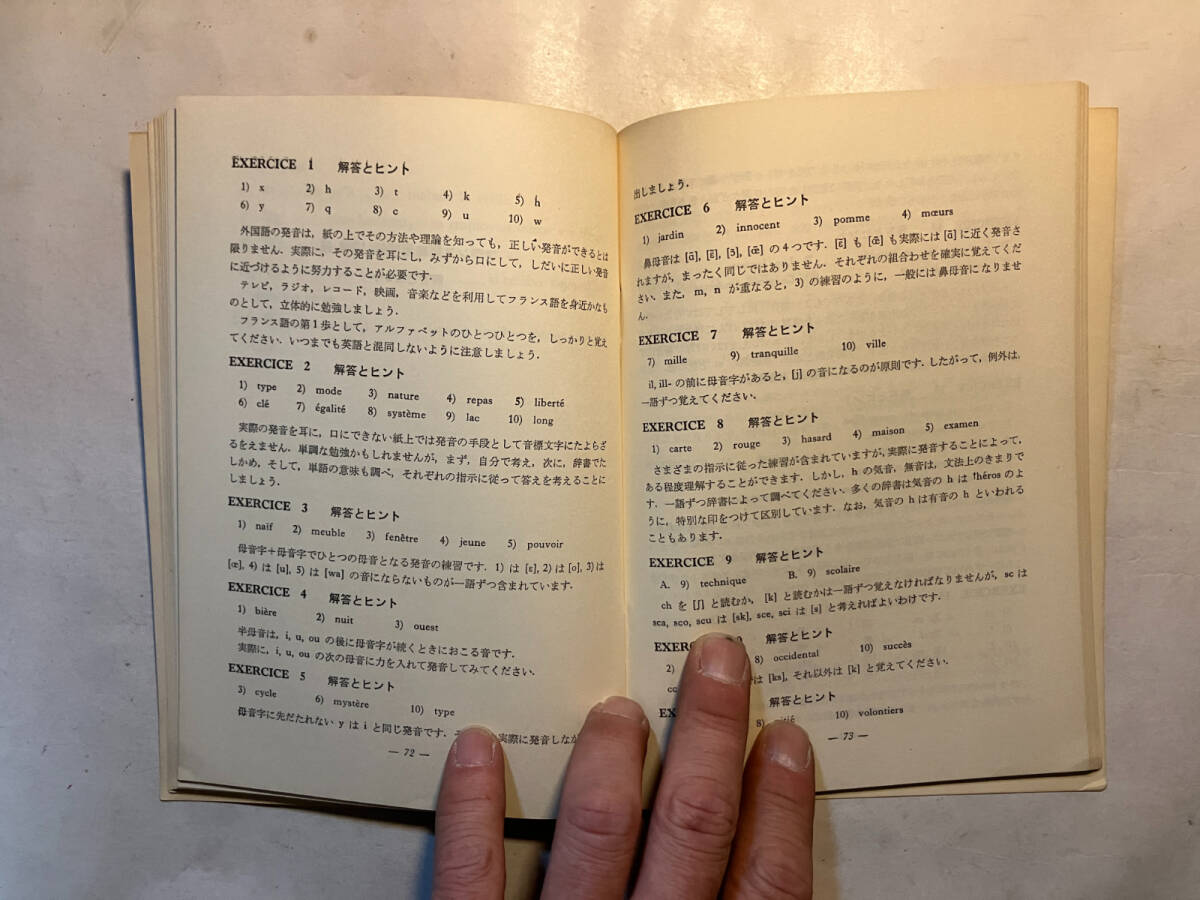 EXERCICE 1 解答とヒント
1) x 2) h 3) t 4) k 5) h
6) y 7) q 8) c 9) u 10) w
外国語の発音は,紙の上でその方法や理論を知っても,正しい発音ができるとは
限りません.実際に,その発音を耳にし,みずから口にして,しだいに正しい発音
に近づけるように努力することが必要です.
テレビ,ラジオ,レコード,映画,音楽などを利用してフランス語を身近かなも
のとして,立体的に勉強しましょう.
フランス語の第1歩として,アルファベットのひとつひとつを,しっかりと覚え
てください.いつまでも英語と混同しないように注意しましょう.
EXERCICE 2 解答とヒント
1) type 2) mode 3) nature 4) repas 5) liberté
6) clé 7) égalité 8) système 9) lac 10) long
実際の発音を耳に,口にできない紙上では発音の手段として音標文字にたよらざ
るをえません.単調な勉強かもしれませんが,まず,自分で考え,次に,辞書でた
しかめ,そして,単語の意味も調べ,それぞれの指示に従って答えを考えることに
しましょう.
EXERCICE 3 解答とヒント
1) naïf 2) meuble 3) fenêtre 4) jeune 5) pouvoir
母音字+母音字でひとつの母音となる発音の練習です.1) は [ɛ], 2) は [o], 3) は
[œ], 4) は [u], 5) は [wa] の音にならないものが一語ずつ含まれています.
EXERCICE 4 解答とヒント
1) bière 2) nuit 3) ouest
半母音は, i, u, ou の後に母音字が続くときにおこる音です.
実際に, i, u, ou の次の母音に力を入れて発音してみてください.
EXERCICE 5 解答とヒント
3) cycle 6) mystère 10) type
母音字に先だたれない y は i と同じ発音です. 実際に発音しなが
— 72 —
出しましょう.
EXERCICE 6 解答とヒント
1) jardin 2) innocent 3) pomme 4) mœurs
鼻母音は [ɑ̃], [ɛ̃], [ɔ̃], [œ̃] の4つです. [ɛ̃] も [œ̃] も実際には [ɑ̃] に近く発音さ
れますが,まったく同じではありません.それぞれの組合わせを確実に覚えてくだ
さい.また, m, n が重なると, 3) の練習のように,一般には鼻母音になりませ
ん.
EXERCICE 7 解答とヒント
7) mille 9) tranquille 10) ville
il, ill- の前に母音字があると, [j] の音になるのが原則です.したがって,例外は,
一語ずつ覚えてください.
EXERCICE 8 解答とヒント
1) carte 2) rouge 3) hasard 4) maison 5) examen
さまざまの指示に従った練習が含まれていますが,実際に発音することによって,
ある程度理解することができます.しかし, h の気音,無音は,文法上のきまりで
す.一語ずつ辞書によって調べてください.多くの辞書は気音の h は †héros のよ
うに,特別な印をつけて区別しています.なお,気音の h は有音の h といわれる
こともあります.
EXERCICE 9 解答とヒント
A. 9) technique B. 9) scolaire
ch を [ʃ] と読むか, [k] と読むかは一語ずつ覚えなければなりませんが, sc は
sca, sco, scu は [sk], sce, sci は [s] と考えればよいわけです.
解答とヒント
2) 8) occidental 10) succès
は [ks], それ以外は [k] と覚えてください.
解答とヒント
8) 10) volontiers
— 73 —